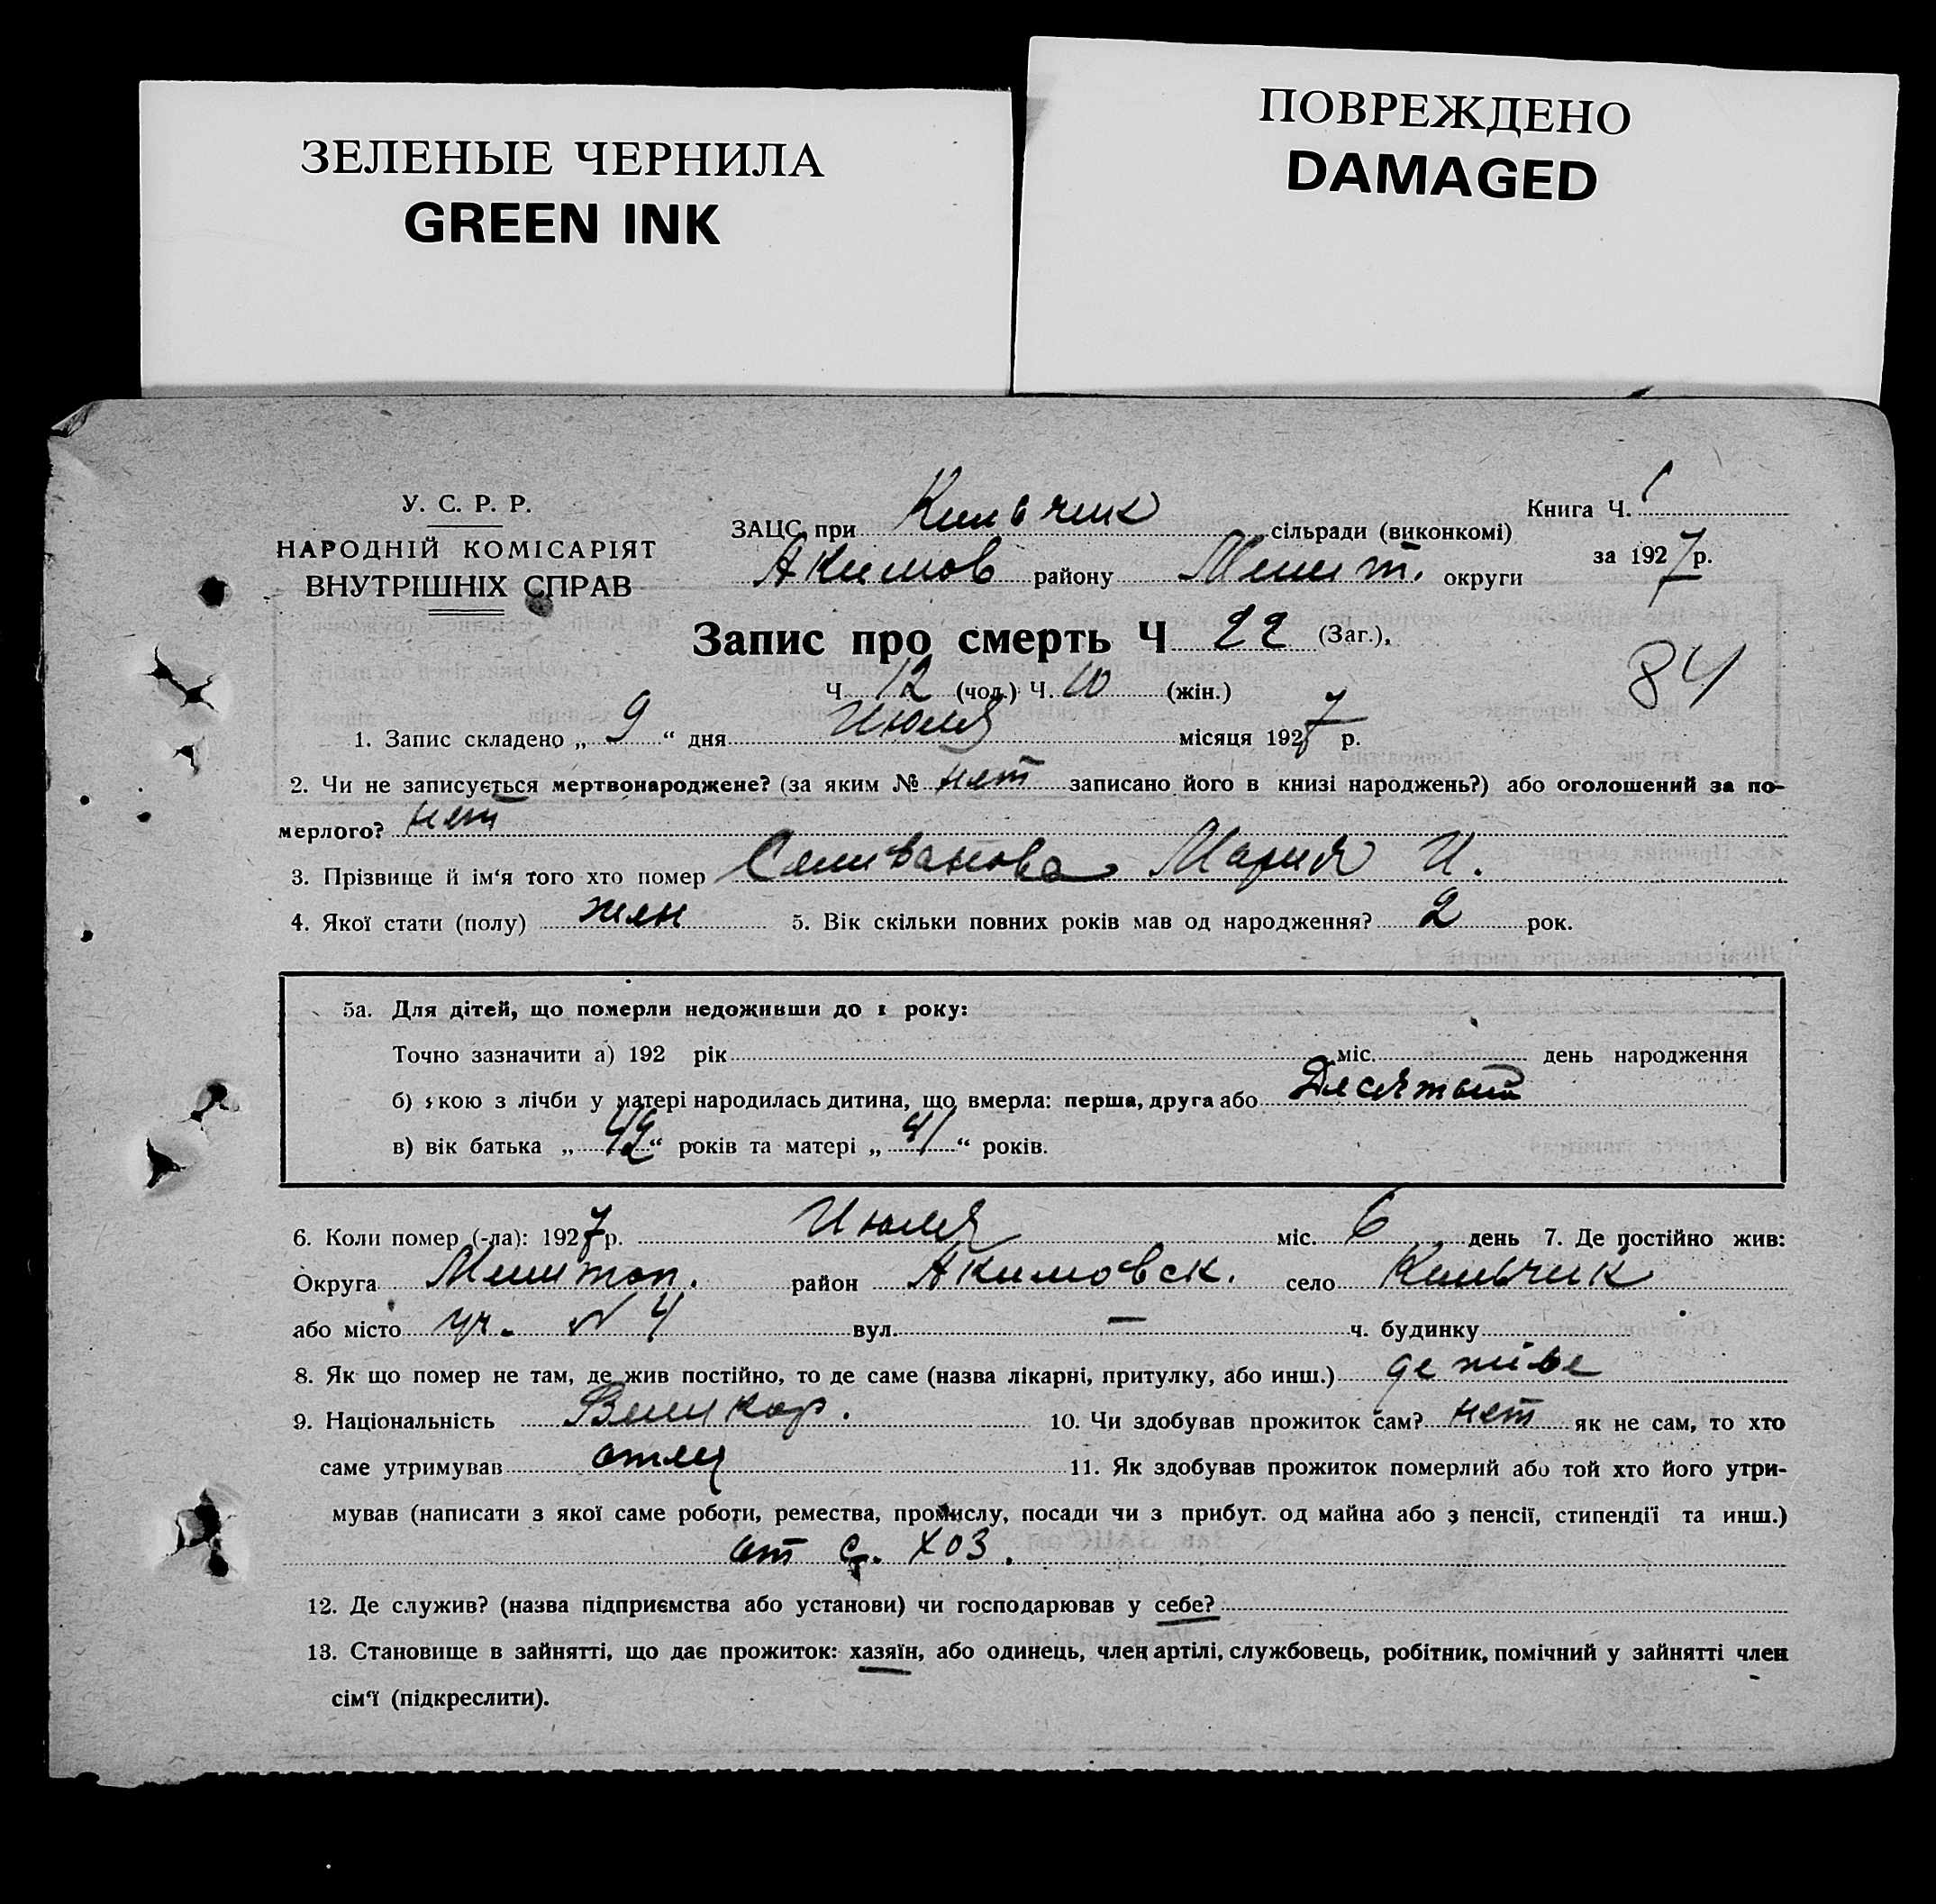 ЗЕЛЕНЫЕ ЧЕРНИЛА
GREEN INK
ПОВРЕЖДЕНО
DAMAGED
У. С. Р. Р.
НАРОДНІЙ КОМІСАРІЯТ
ВНУТРІШНІХ СПРАВ
ЗАЦС при Кильчик сільради (виконкомі)
Акимов району Мелит. округи
Книга Ч. 1
за 1927 р.
Запис про смерть Ч 22 (Заг.),
84
Ч 12 (чол.) Ч. 10 (жін.)
1. Запис складено „ 9 “ дня Июля місяця 1927 р.
2. Чи не записується мертвонароджене? (за яким № нет записано його в книзі народжень?) або оголошений за по-
мерлого? нет
3. Прізвище й ім‘я того хто помер Селиванова Мария И.
4. Якої стати (полу) жен 5. Вік скільки повних років мав од народження? 2 рок.
5а. Для дітей, що померли недоживши до 1 року:
Точно зазначити а) 192 рік міс. день народження
б) якою з лічби у матері народилась дитина, що вмерла: перша, друга або Десятый
в) вік батька „ 42 “ років та матері „ 41 “ років.
6. Коли помер (-ла): 1927 р. Июля міс. 6 день 7. Де постійно жив:
Округа Мелитоп. район Акимовск. село Кильчик
або місто уч. № 4 вул. — ч. будинку
8. Як що помер не там, де жив постійно, то де саме (назва лікарні, притулку, або инш.) де живе
9. Національність Великор. 10. Чи здобував прожиток сам? нет як не сам, то хто
саме утримував отец 11. Як здобував прожиток померлий або той хто його утри-
мував (написати з якої саме роботи, ремества, промислу, посади чи з прибут. од майна або з пенсії, стипендії та инш.)
от с. хоз.
12. Де служив? (назва підприємства або установи) чи господарював у себе?
13. Становище в зайнятті, що дає прожиток: хазяїн, або одинець, член артілі, службовець, робітник, помічний у зайнятті член
сім‘ї (підкреслити).